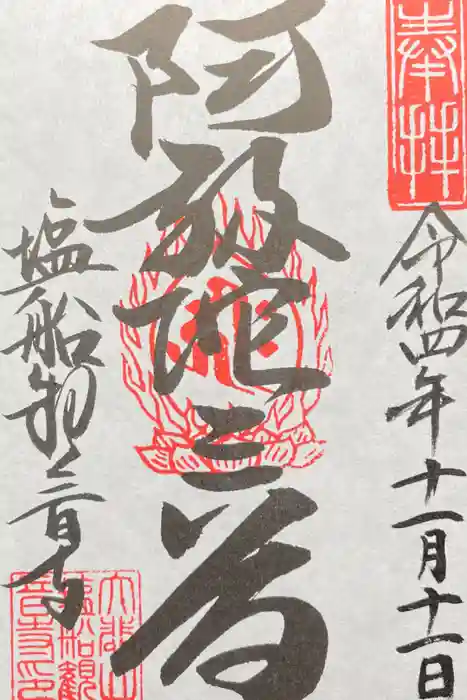 奉拝
令和四年十一月十一日
阿弥陀三尊
塩船観音寺
大悲山
塩船觀
音寺印